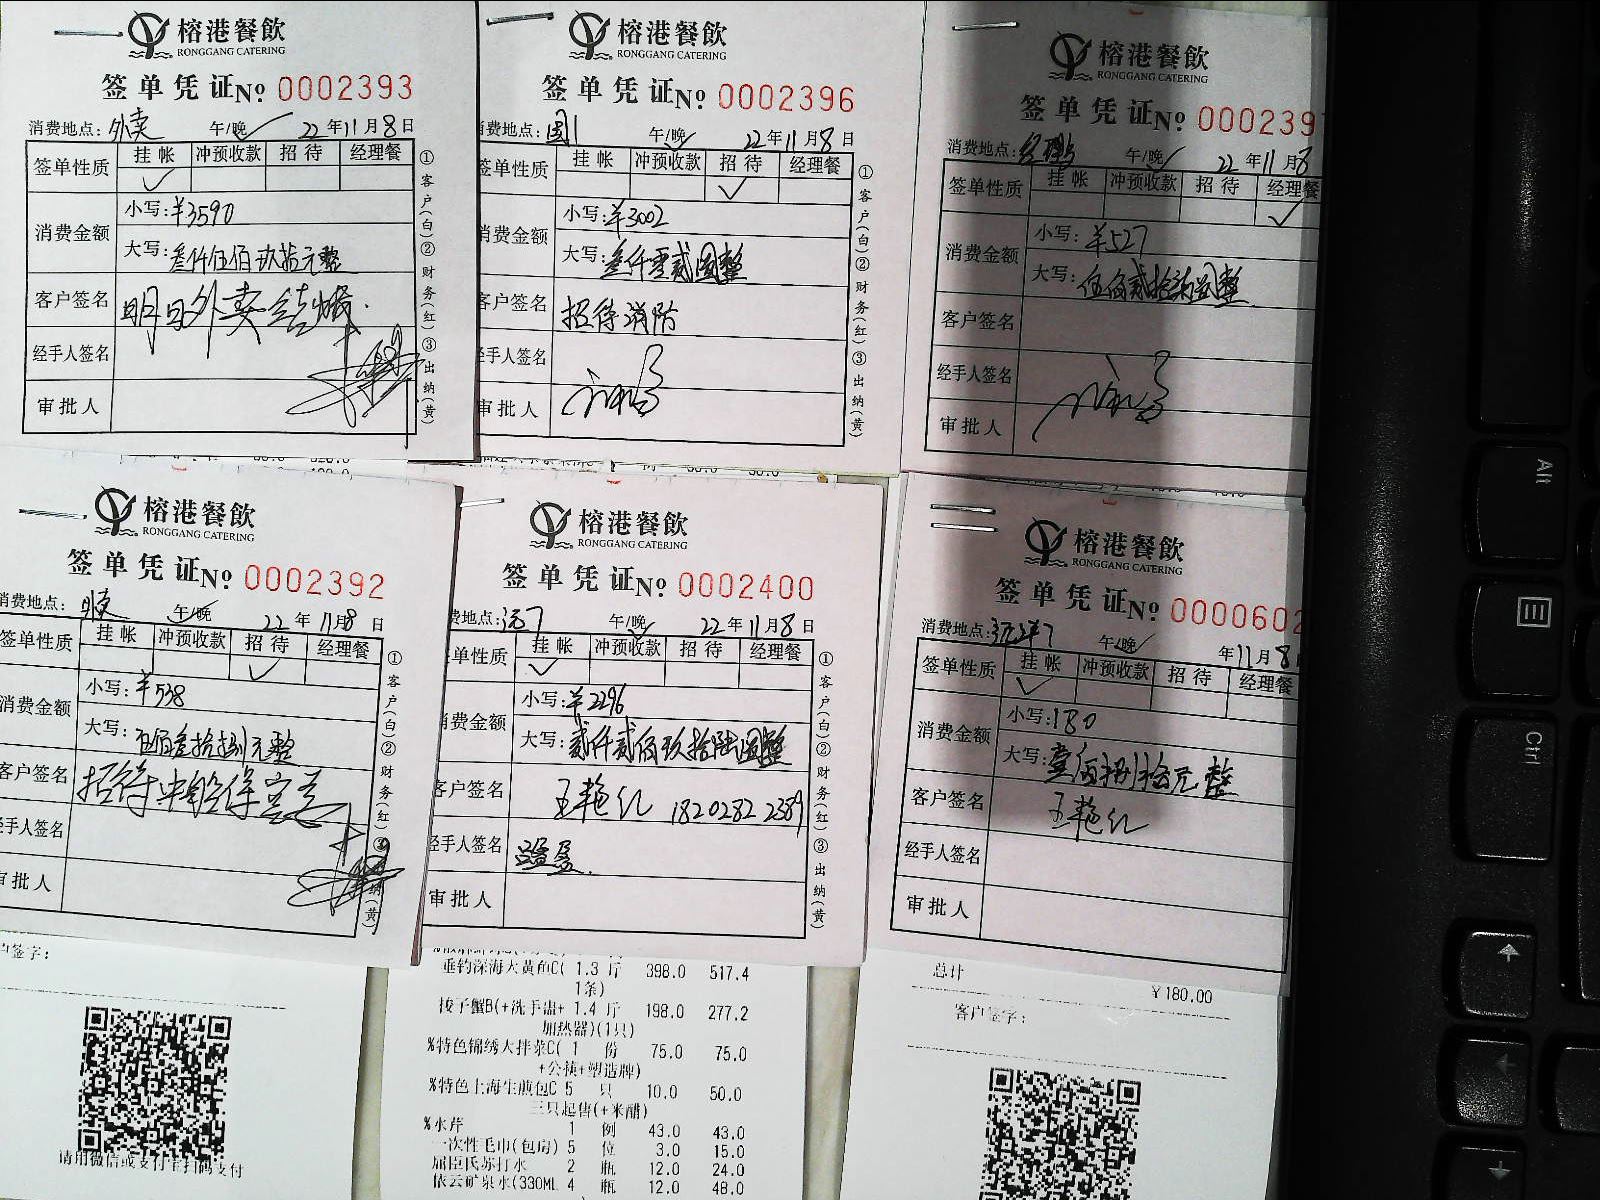 榕港餐飲
RONGGANG CATERING
签单凭证№ 0002393
消费地点：外卖 午/晚 22年11月8日
签单性质 挂帐 冲预收款 招待 经理餐
消费金额 小写：¥3590
大写：叁仟伍佰玖拾元整
客户签名 明日外卖结帐.
经手人签名
审批人
①客户(白)②财务(红)③出纳(黄)
榕港餐飲
RONGGANG CATERING
签单凭证№ 0002396
消费地点：国1 午/晚 22年11月8日
签单性质 挂帐 冲预收款 招待 经理餐
消费金额 小写：¥3002
大写：叁仟零贰圆整
客户签名 招待消防
经手人签名
审批人
①客户(白)②财务(红)③出纳(黄)
榕港餐飲
RONGGANG CATERING
签单凭证№ 000239
消费地点： 午/晚 22年11月8
签单性质 挂帐 冲预收款 招待 经理餐
消费金额 小写：¥527
大写：伍佰贰拾柒圆整
客户签名
经手人签名
审批人
榕港餐飲
RONGGANG CATERING
签单凭证№ 0002392
消费地点：外卖 午/晚 22年11月8日
签单性质 挂帐 冲预收款 招待 经理餐
消费金额 小写：¥538
大写：伍佰叁拾捌元整
客户签名 招待
经手人签名
审批人
①客户(白)②财务(红)③出纳(黄)
签字：
请用微信或支付宝扫码支付
榕港餐飲
RONGGANG CATERING
签单凭证№ 0002400
费地点： 午/晚 22年11月8日
单性质 挂帐 冲预收款 招待 经理餐
消费金额 小写：¥2296
大写：贰仟贰佰玖拾陆圆整
客户签名 王艳红 18202822389
经手人签名
审批人
①客户(白)②财务(红)③出纳(黄)
垂钓深海大黄鱼C( 1.3 斤 398.0 517.4
1条)
梭子蟹B(+洗手盅+ 1.4 斤 198.0 277.2
加热器)(1只)
%特色锦绣大拌菜C( 1 份 75.0 75.0
+公筷+塑造牌)
%特色上海生煎包C 5 只 10.0 50.0
三只起售(+米醋)
%水芹 1 例 43.0 43.0
一次性毛巾(包房) 5 位 3.0 15.0
屈臣氏苏打水 2 瓶 12.0 24.0
依云矿泉水(330ML 4 瓶 12.0 48.0
榕港餐飲
RONGGANG CATERING
签单凭证№ 0000602
消费地点： 午/晚 年11月8
签单性质 挂帐 冲预收款 招待 经理餐
消费金额 小写：180
大写：壹佰捌拾元整
客户签名 王艳红
经手人签名
审批人
总计
￥180.00
客户签字：
Alt
Ctrl